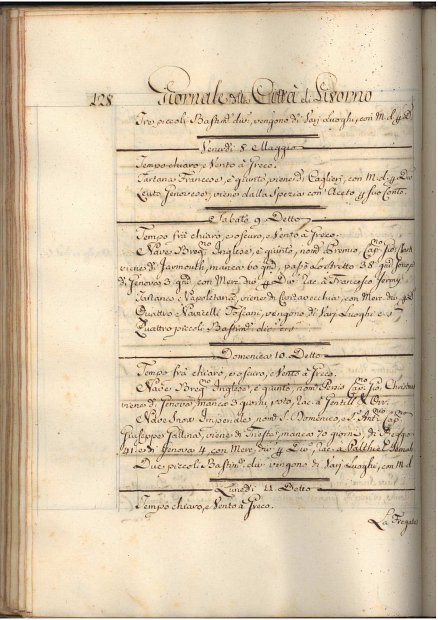 128 Giornale della Città di Livorno
Tre piccoli Bastim.ti div.i, vengono di Varj Luoghi, con M.d.
Venerdì 8 Maggio
Tempo chiaro, e Vento à Greco.
Tartana Francese, è giunto, viene di Caglieri, con M.d. Div.
Leuto Genovese, viene dalla Spezia con Aceto p suo Conto.
Sabato 9 Detto
Tempo frà chiaro, e oscuro, e Vento à Greco.
Nave Breg.no Inglese, è giunto, nom.
viene di Jarmouth, manca 60 g.ni, passò lo Stretto 38 g.ni sono, e
di Genova 3 g.ni con Merc. div.e p Div. Rac. à Francesco
Tartana Napoletana, viene di Civitavecchia, con Mer. div.
Quattro Navicelli Toscani, vengono di Varj Luoghi
Quattro piccoli Bastim.ti div.i
Domenica 10 Detto
Tempo frà chiaro, e oscuro, e Vento à Greco.
Nave Breg.no Inglese, è giunto, nom. Cap. Gio.
viene di Genova, manca 3 giorni, Rac. à Gentil, &
Nave Snow Imperiale, nom. S. Domenico, e S. Ant.
Giuseppe viene di Trieste, manca 70 giorni, di
41 e di Genova 4, con Merc. div. p Div. Rac. à
Due piccoli Bastim.ti div.i vengono di Varj Luoghi, con M.d
Lunedì 11 Detto
Tempo chiaro, e Vento à Greco.
La Fregata